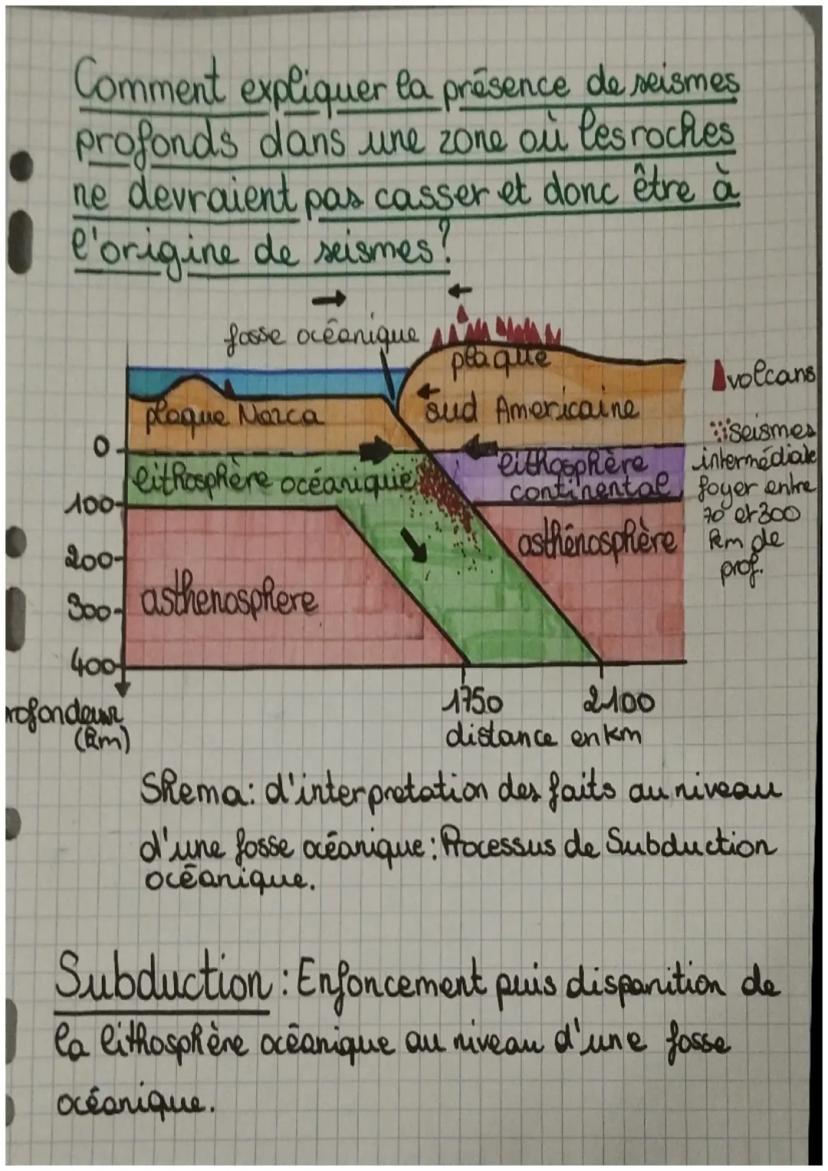 Comment expliquer la présence de seismes
profonds dans une zone où les roches
ne devraient pas casser et donc être à
l'origine de seismes?
fosse océanique
plaque
sud Américaine
plaque Nazca
volcans
seismes
intermédiaire
foyer entre
70 et 300
km de
prof.
0
lithosphère océanique
lithosphère
continental
100
200
300
400
asthenosphere
asthénosphère
rofondeur
(km)
1750
2100
distance en km
Skema: d'interpretation des faits au niveau
d'une fosse océanique: Processus de Subduction
océanique.
Subduction: Enfoncement puis disparition de
la lithosphère océanique au niveau d'une fosse
océanique.